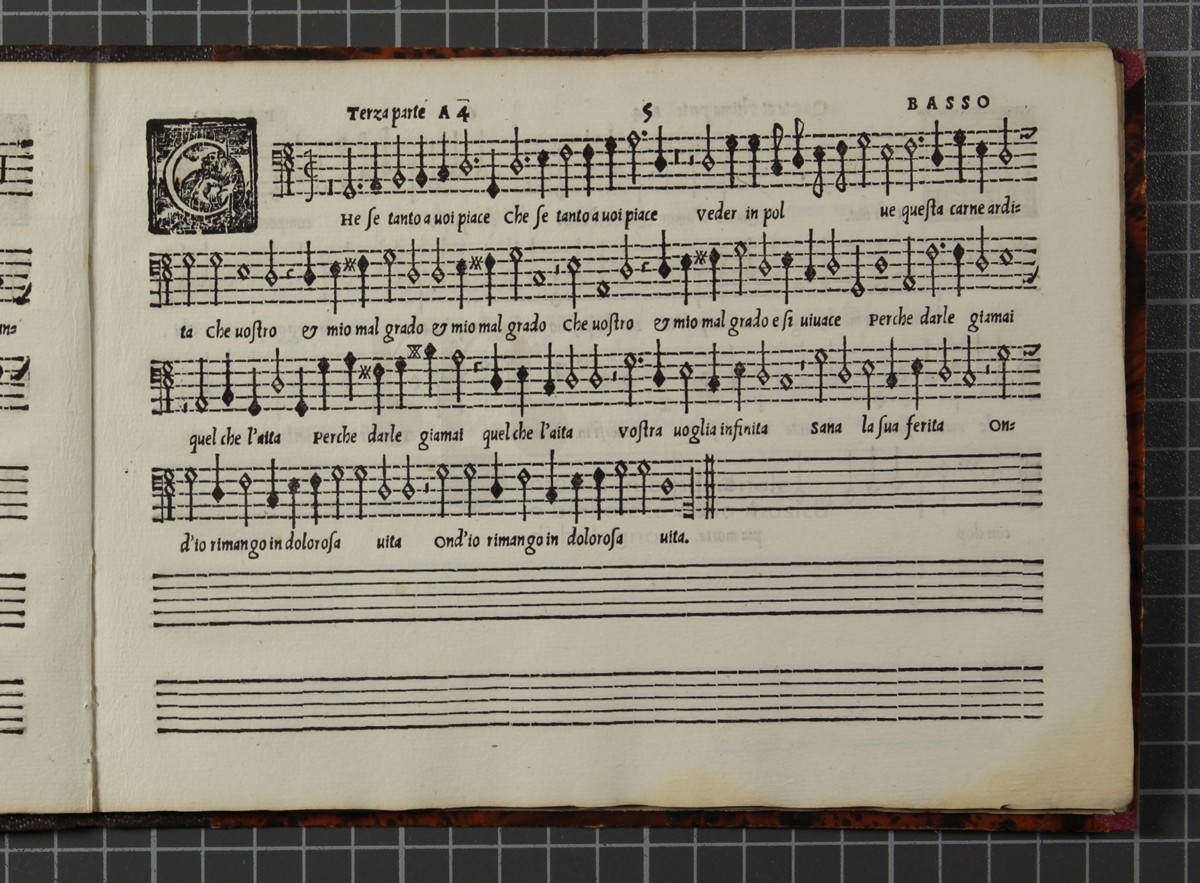 Terza parte A 4 5 BASSO
CHe se tanto a uoi piace Che se tanto a uoi piace Veder in pol ue questa carne ardi=
ta Che uostro & mio mal grado & mio mal grado Che uostro & mio mal grado e si uiuace Perche darle giamai
quel che l'aita Perche darle giamai quel che l'aita Vostra uoglia infinita Sana la sua ferita On=
d'io rimango in dolorosa uita Ond'io rimango in dolorosa uita.